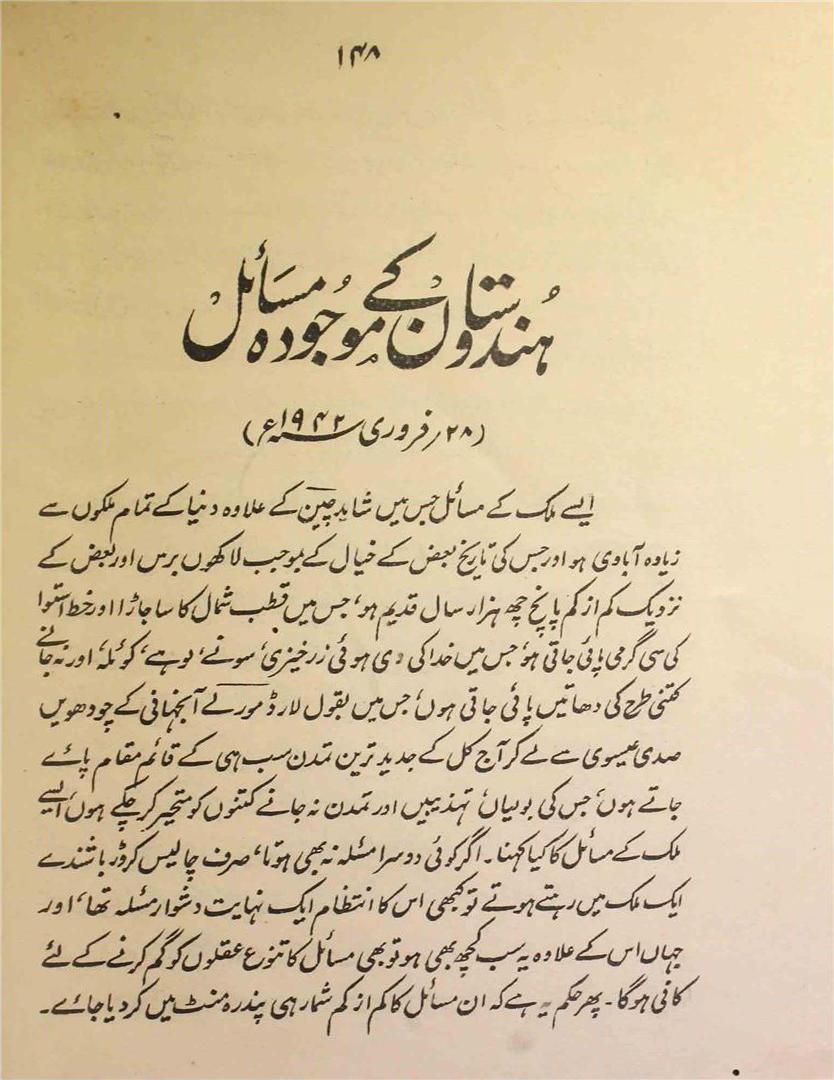 ۱۴۸
ہندوستان کے موجودہ مسائل
(۲۸؍ فروری ۱۹۴۲ء)
ایسے ملک کے مسائل جس میں شاید چین کے علاوہ دنیا کے تمام ملکوں سے
زیادہ آبادی ہو اور جس کی تاریخ بعض کے خیال کے بموجب لاکھوں برس اور بعض کے
نزدیک کم از کم پانچ چھ ہزار سال قدیم ہو، جس میں قطب شمال کا سا جاڑا اور خط استوا
کی سی گرمی پائی جاتی ہو، جس میں خدا کی دی ہوئی زرخیزی، سونے، لوہے، کوئلہ، اور نہ جانے
کتنی طرح کی دھاتیں پائی جاتی ہوں، جس میں بقول لارڈ مورلے آنجہانی کے چودھویں
صدی عیسوی سے لے کر آج کل کے جدید ترین تمدن سب ہی کے قائم مقام پائے
جاتے ہوں، جس کی بولیاں، تہذیبیں اور تمدن نہ جانے کتنوں کو متحیر کر چکے ہوں، ایسے
ملک کے مسائل کا کیا کہنا۔ اگر کوئی دوسرا مسئلہ نہ بھی ہوتا، صرف چالیس کروڑ باشندے
ایک ملک میں رہتے ہوتے تو کبھی اس کا انتظام ایک نہایت دشوار مسئلہ تھا، اور
جہاں اس کے علاوہ یہ سب کچھ بھی ہو تو بھی مسائل کا تنوع عقلوں کو گم کرنے کے لئے
کافی ہوگا۔ پھر حکم یہ ہے کہ ان مسائل کا کم از کم شمار ہی پندرہ منٹ میں کر دیا جائے۔